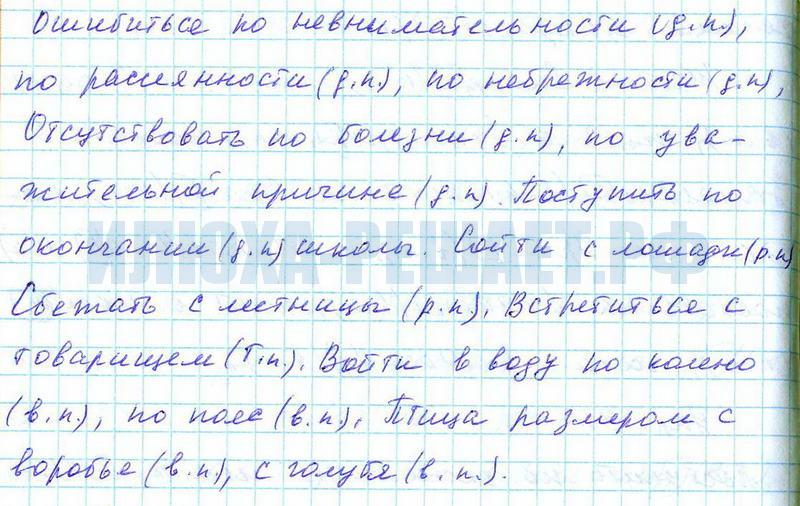 Ошибиться по невнимательности (д.п.),
по рассеянности (д.п.), по небрежности (д.п),
Отсутствовать по болезни (д.п), по ува-
жительной причине (д.п). Поступить по
окончании (д.п) школы. Сойти с лошади (р.п)
Сбежать с лестницы (р.п.), Встретиться с
товарищем (Т.п.). Войти в воду по колено
(в.п.), по пояс (в.п.), Птица размером с
воробья (в.п), с голубя (в.п.).
ИЛЮХА-РЕШАЕТ.РФ